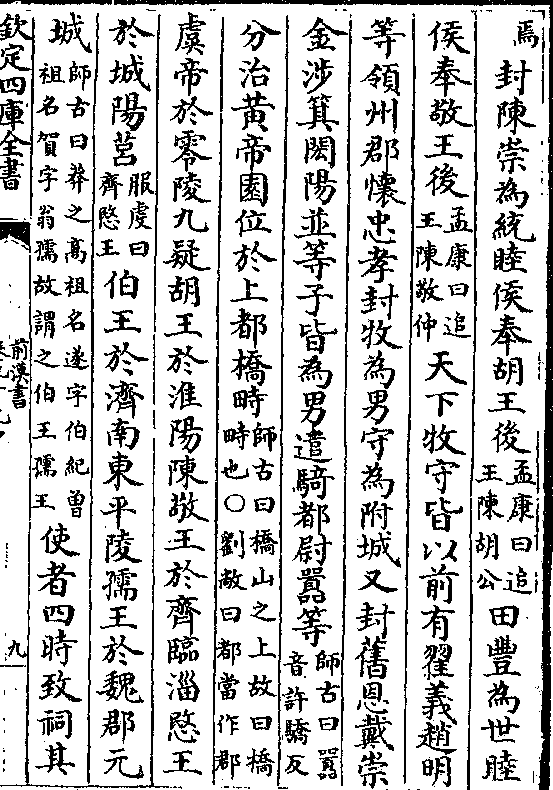 焉封陳崇為統睦侯奉胡王後孟康曰追王陳胡公田豐為世睦
侯奉敬王後孟康曰追王陳敬仲天下牧守皆以前有翟義趙明
等領州郡懷忠孝封牧為男守為附城又封舊恩戴崇
金涉箕閎陽並等子皆為男遣騎都尉嚻等師古曰嚻音許驕反
分治黃帝園位於上都橋畤師古曰橋山之上故曰橋畤也○劉敞曰都當作郡
虞帝於零陵九疑胡王於淮陽陳敬王於齊臨淄愍王
於城陽莒服虔曰齊愍王伯王於濟南東平陵孺王於魏郡元
城師古曰莽之高祖名遂字伯紀曾祖名賀字翁孺故謂之伯王孺王使者四時致祠其
欽定四庫全書
前漢書
九